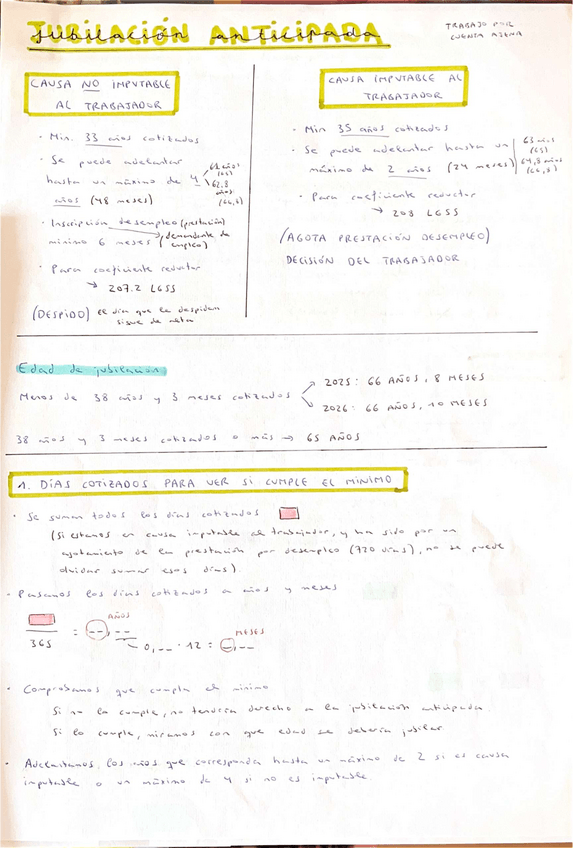 Jubilación anticipada
TRABAJO POR
CUENTA AJENA
CAUSA NO IMPUTABLE
AL TRABAJADOR
· Min. 33 años cotizados
· Se puede adelantar
hasta un máximo de 4
años (48 meses)
61 años
(65)
62,8
años
(66,8)
· Inscripción desempleo (prestación)
mínimo 6 meses (demandante de
empleo)
· Para coeficiente reductor
→ 207.2 LGSS
(DESPIDO) el día que le despiden
sigue de alta
CAUSA IMPUTABLE AL
TRABAJADOR
· Min 35 años cotizados
· Se puede adelantar hasta un
máximo de 2 años (24 meses)
63 años
(65)
64,8 años
(66,8)
· Para coeficiente reductor
→ 208 LGSS
(AGOTA PRESTACIÓN DESEMPLEO)
DECISIÓN DEL TRABAJADOR
Edad de jubilación
Menos de 38 años y 3 meses cotizados
2025: 66 AÑOS, 8 MESES
2026: 66 AÑOS, 10 MESES
38 años y 3 meses cotizados o más → 65 AÑOS
1. DÍAS COTIZADOS PARA VER SI CUMPLE EL MÍNIMO
· Se suman todos los días cotizados
(Si estamos en causa imputable al trabajador, y ha sido por un
agotamiento de la prestación por desempleo (720 días), no se puede
olvidar sumar esos días).
· Pasamos los días cotizados a años y meses
AÑOS
365 = _ _, _ _
0, _ _ · 12 = _, _ _
MESES
· Comprobamos que cumpla el mínimo
Si no lo cumple, no tendría derecho a la jubilación anticipada
Si lo cumple, miramos con que edad se debería jubilar
· Adelantamos los años que corresponda hasta un máximo de 2 si es causa
imputable o un máximo de 4 si no es imputable.